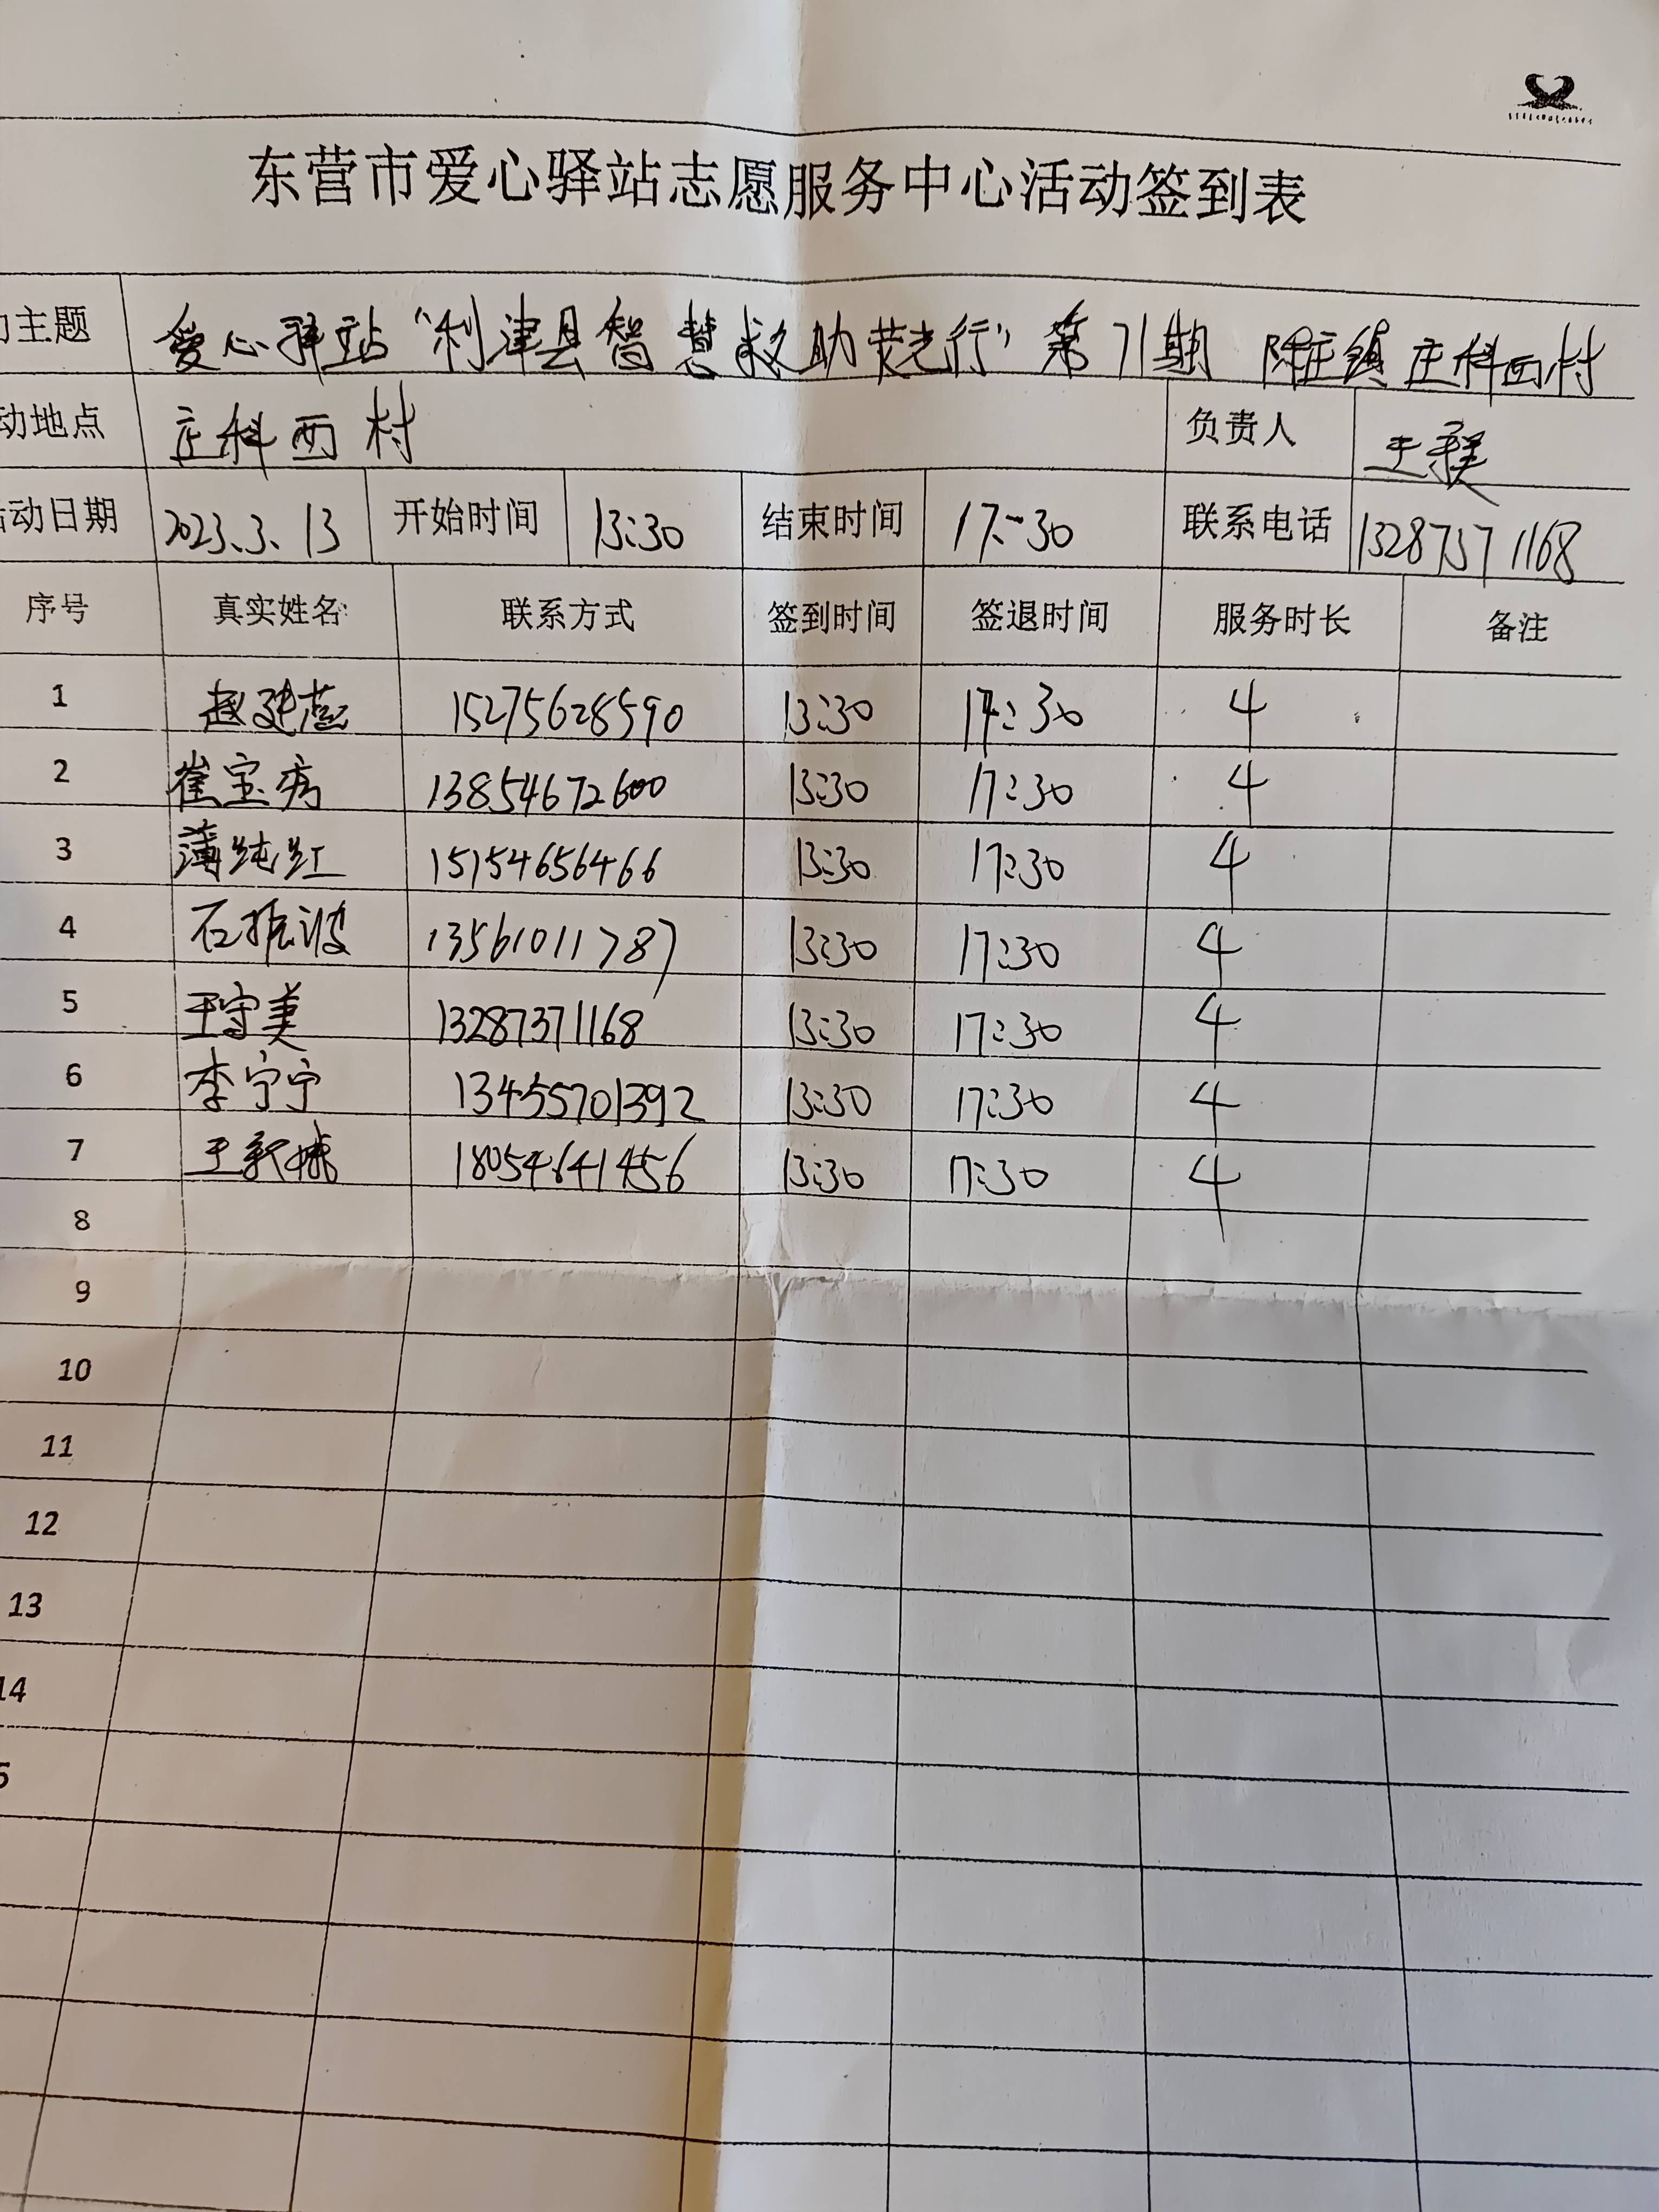 东营市爱心驿站志愿服务中心活动签到表
主题 爱心驿站“利津县智慧救助荧光行”第71期 陈庄镇庄科西村
动地点 庄科西村 负责人 王守美
动日期 2023.3.13 开始时间 13:30 结束时间 17:30 联系电话 13287371168
序号 真实姓名 联系方式 签到时间 签退时间 服务时长 备注
1 赵建蕊 15275628590 13:30 17:30 4
2 崔宝 13854672600 13:30 17:30 4
3 薄纯红 15154656466 13:30 17:30 4
4 石振波 13561011787 13:30 17:30 4
5 王守美 13287371168 13:30 17:30 4
6 李宁宁 13455701392 13:30 17:30 4
7 王新娥 18054641456 13:30 17:30 4
8
9
10
11
12
13
14
5